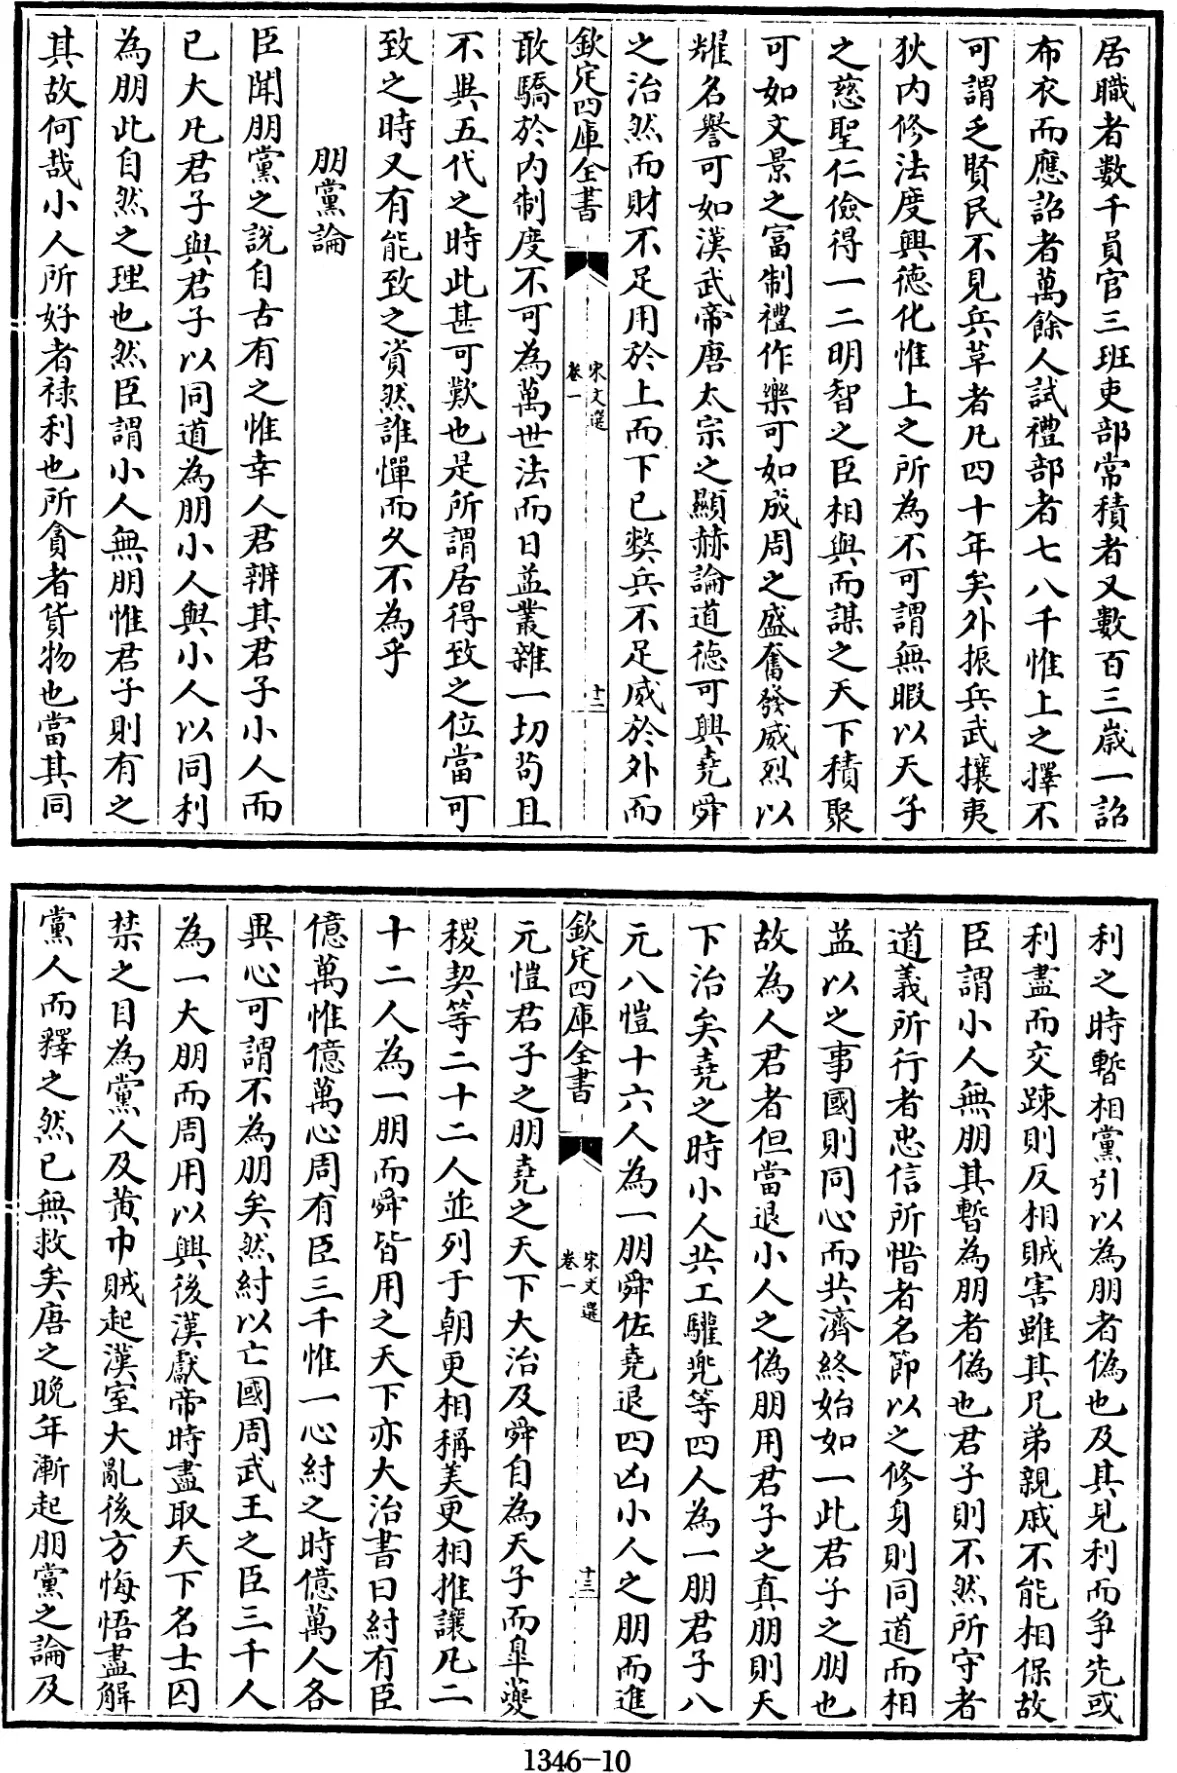 居職者數千員官三班吏部常積者又數百三歲一詔
布衣而應詔者萬餘人試禮部者七八千惟上之擇不
可謂乏賢民不見兵革者凡四十年矣外振兵武攘夷
狄内修法度興德化惟上之所為不可謂無暇以天子
之慈聖仁儉得一二明智之臣相與而謀之天下積聚
可如文景之富制禮作樂可如成周之盛奮發威烈以
耀名譽可如漢武帝唐太宗之顯赫論道德可興堯舜
之治然而財不足用於上而下已弊兵不足威於外而
欽定四庫全書
宋文選
卷一
十二
敢驕於内制度不可為萬世法而日益叢雜一切茍且
不異五代之時此甚可歎也是所謂居得致之位當可
致之時又有能致之資然誰憚而久不為乎
朋黨論
臣聞朋黨之說自古有之惟幸人君辨其君子小人而
已大凡君子與君子以同道為朋小人與小人以同利
為朋此自然之理也然臣謂小人無朋惟君子則有之
其故何哉小人所好者禄利也所貪者貨物也當其同
利之時暫相黨引以為朋者偽也及其見利而争先或
利盡而交踈則反相賊害雖其兄弟親戚不能相保故
臣謂小人無朋其暫為朋者偽也君子則不然所守者
道義所行者忠信所惜者名節以之修身則同道而相
益以之事國則同心而共濟終始如一此君子之朋也
故為人君者但當退小人之偽朋用君子之真朋則天
下治矣堯之時小人共工驩兜等四人為一朋君子八
元八愷十六人為一朋舜佐堯退四凶小人之朋而進
欽定四庫全書
宋文選
卷一
十三
元愷君子之朋堯之天下大治及舜自為天子而臯夔
稷契等二十二人並列于朝更相稱美更相推讓凡二
十二人為一朋而舜皆用之天下亦大治書曰紂有臣
億萬惟億萬心周有臣三千惟一心紂之時億萬人各
異心可謂不為朋矣然紂以亡國周武王之臣三千人
為一大朋而周用以興後漢獻帝時盡取天下名士囚
禁之目為黨人及黄巾賊起漢室大亂後方悔悟盡解
黨人而釋之然已無救矣唐之晚年漸起朋黨之論及
1346-10